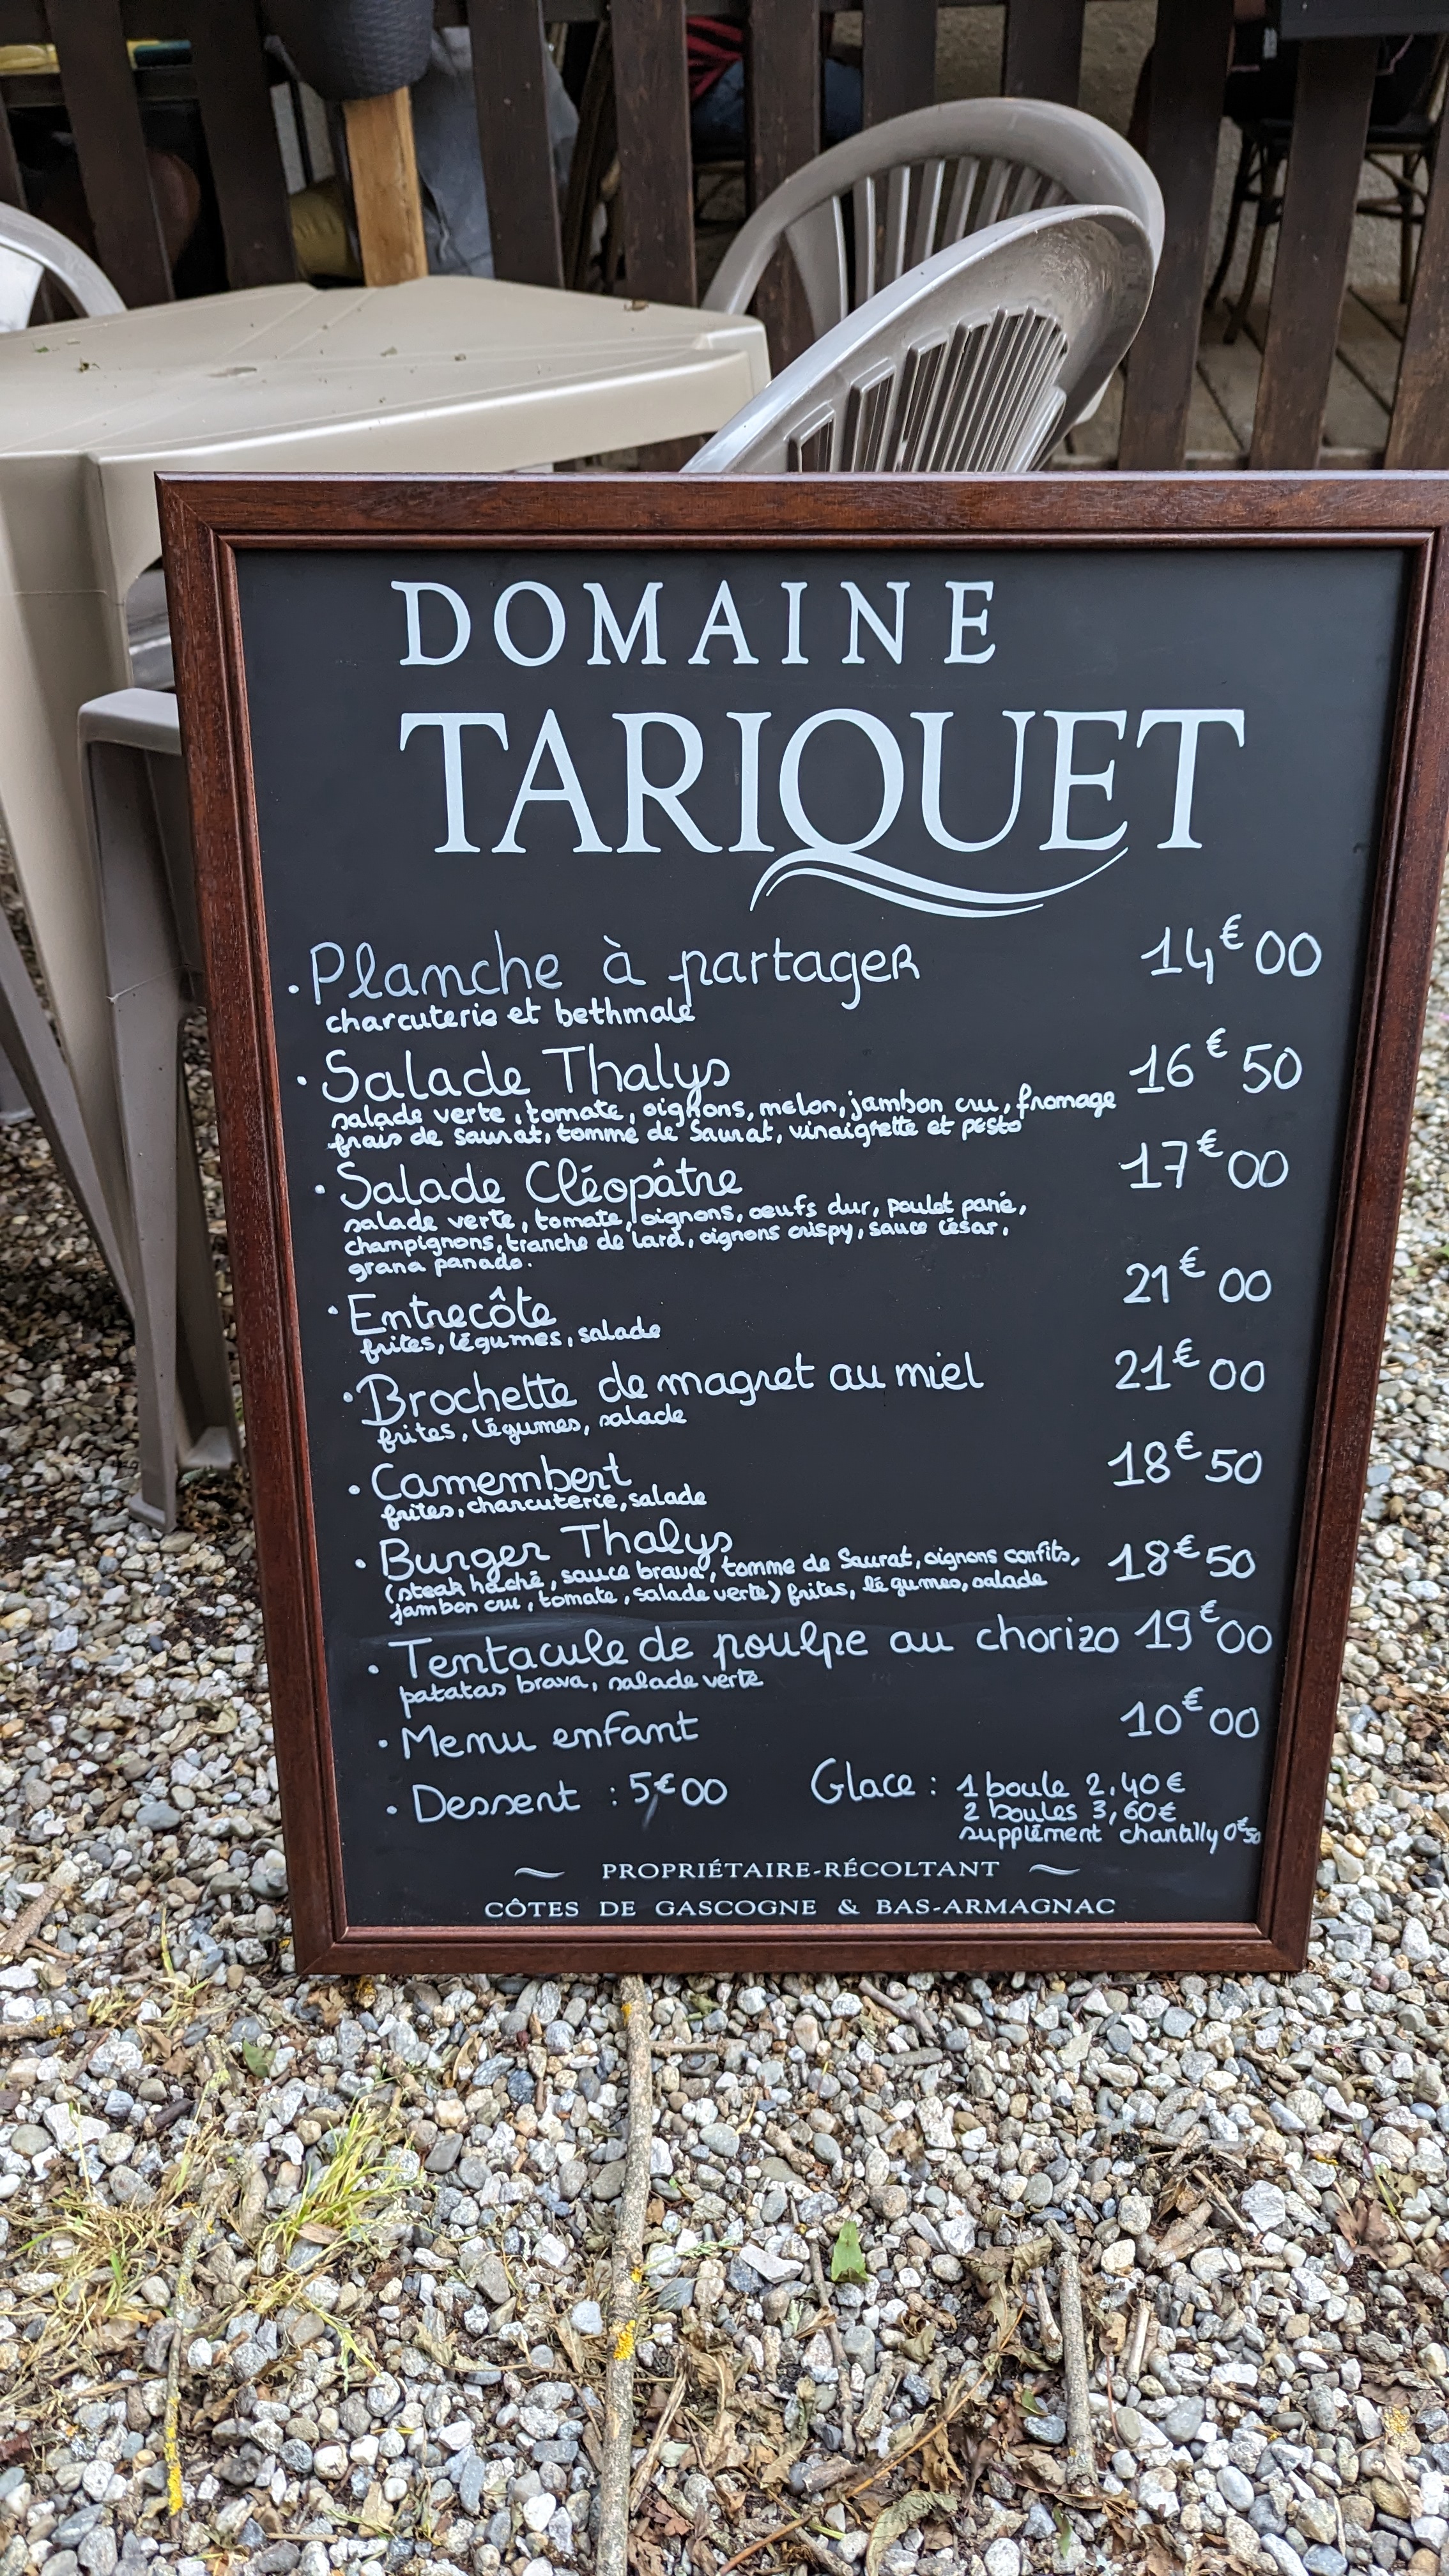 DOMAINE
TARIQUET
. Planche à partager 14€00
charcuterie et bethmale
. Salade Thalys 16€50
salade verte, tomate, oignons, melon, jambon cru, fromage
frais de Saurat, tomme de Saurat, vinaigrette et pesto
. Salade Cléopâtre 17€00
salade verte, tomate, oignons, oeufs dur, poulet pané,
champignons, tranche de lard, oignons crispy, sauce césar,
grana panado.
. Entrecôte 21€00
frites, légumes, salade
. Brochette de magret au miel 21€00
frites, légumes, salade
. Camembert 18€50
frites, charcuterie, salade
. Burger Thalys 18€50
(steak haché, sauce brava, tomme de Saurat, oignons confits,
jambon cru, tomate, salade verte) frites, légumes, salade
. Tentacule de poulpe au chorizo 19€00
patatas brava, salade verte
. Menu enfant 10€00
. Dessert : 5€00 Glace : 1 boule 2,40€
2 boules 3,60€
supplément chantilly 0€50
PROPRIÉTAIRE-RÉCOLTANT
CÔTES DE GASCOGNE & BAS-ARMAGNAC